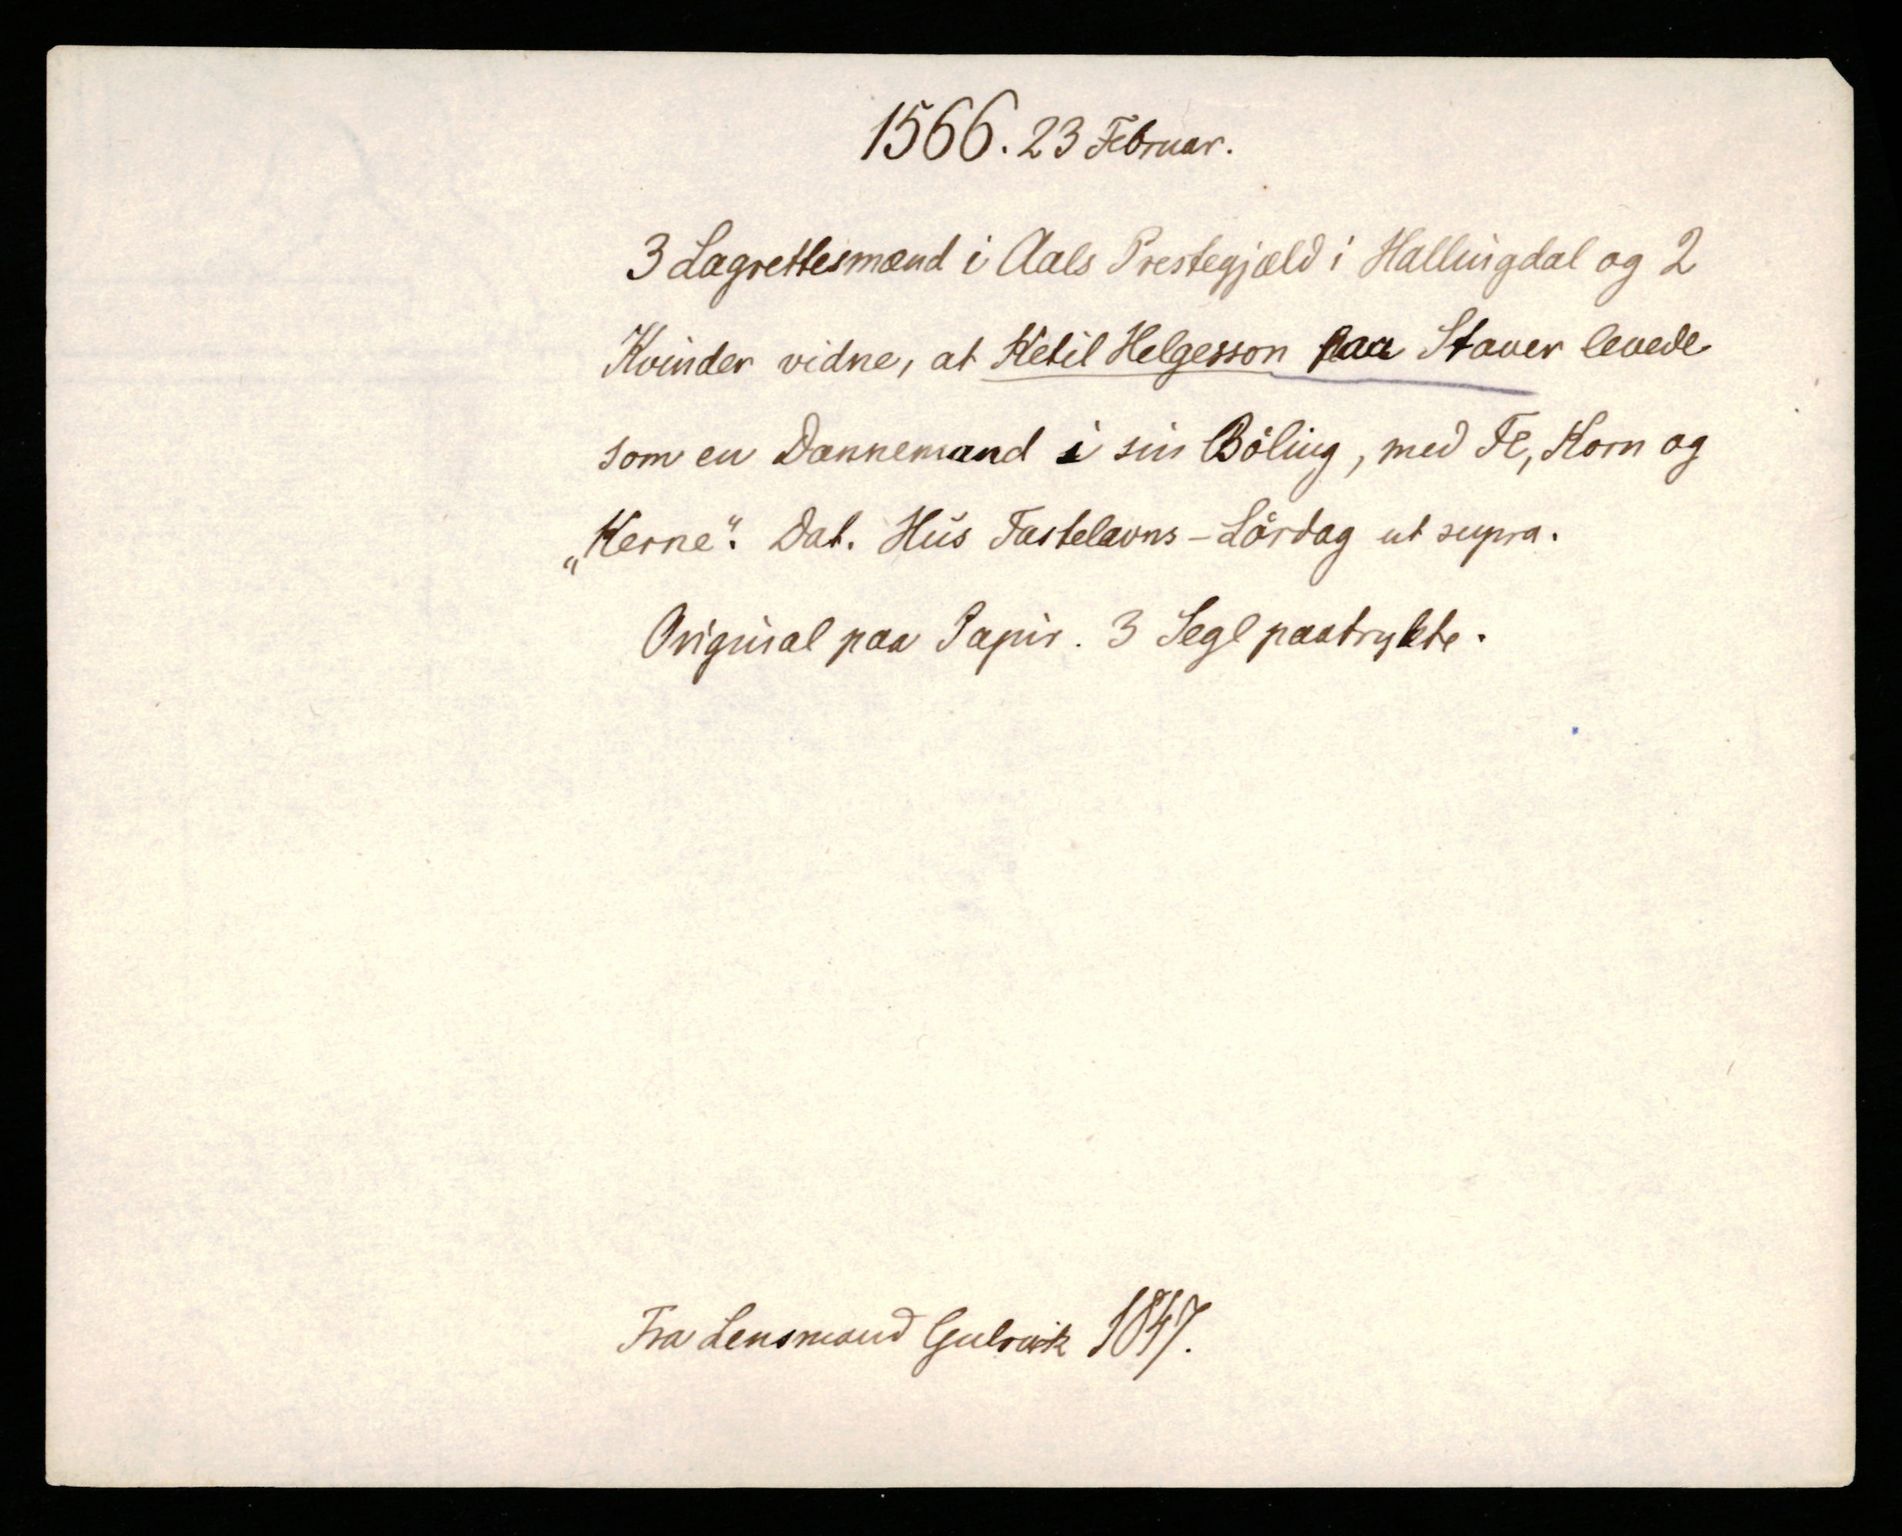 1566. 23 Februar.
3 Lagrettesmænd i Aals Prestegjæld i Hallingdal og 2
Kvinder vidne, at Ketil Helgesson paa Staver levede
som en Dannemand i sin Böling, med Fe, Korn og
„Kerne“. Dat. Hus Fastelavns-Lördag ut supra.
Original paa Papir. 3 Segl paatrykte.
Fra Lensmand Gulsvik 1847.